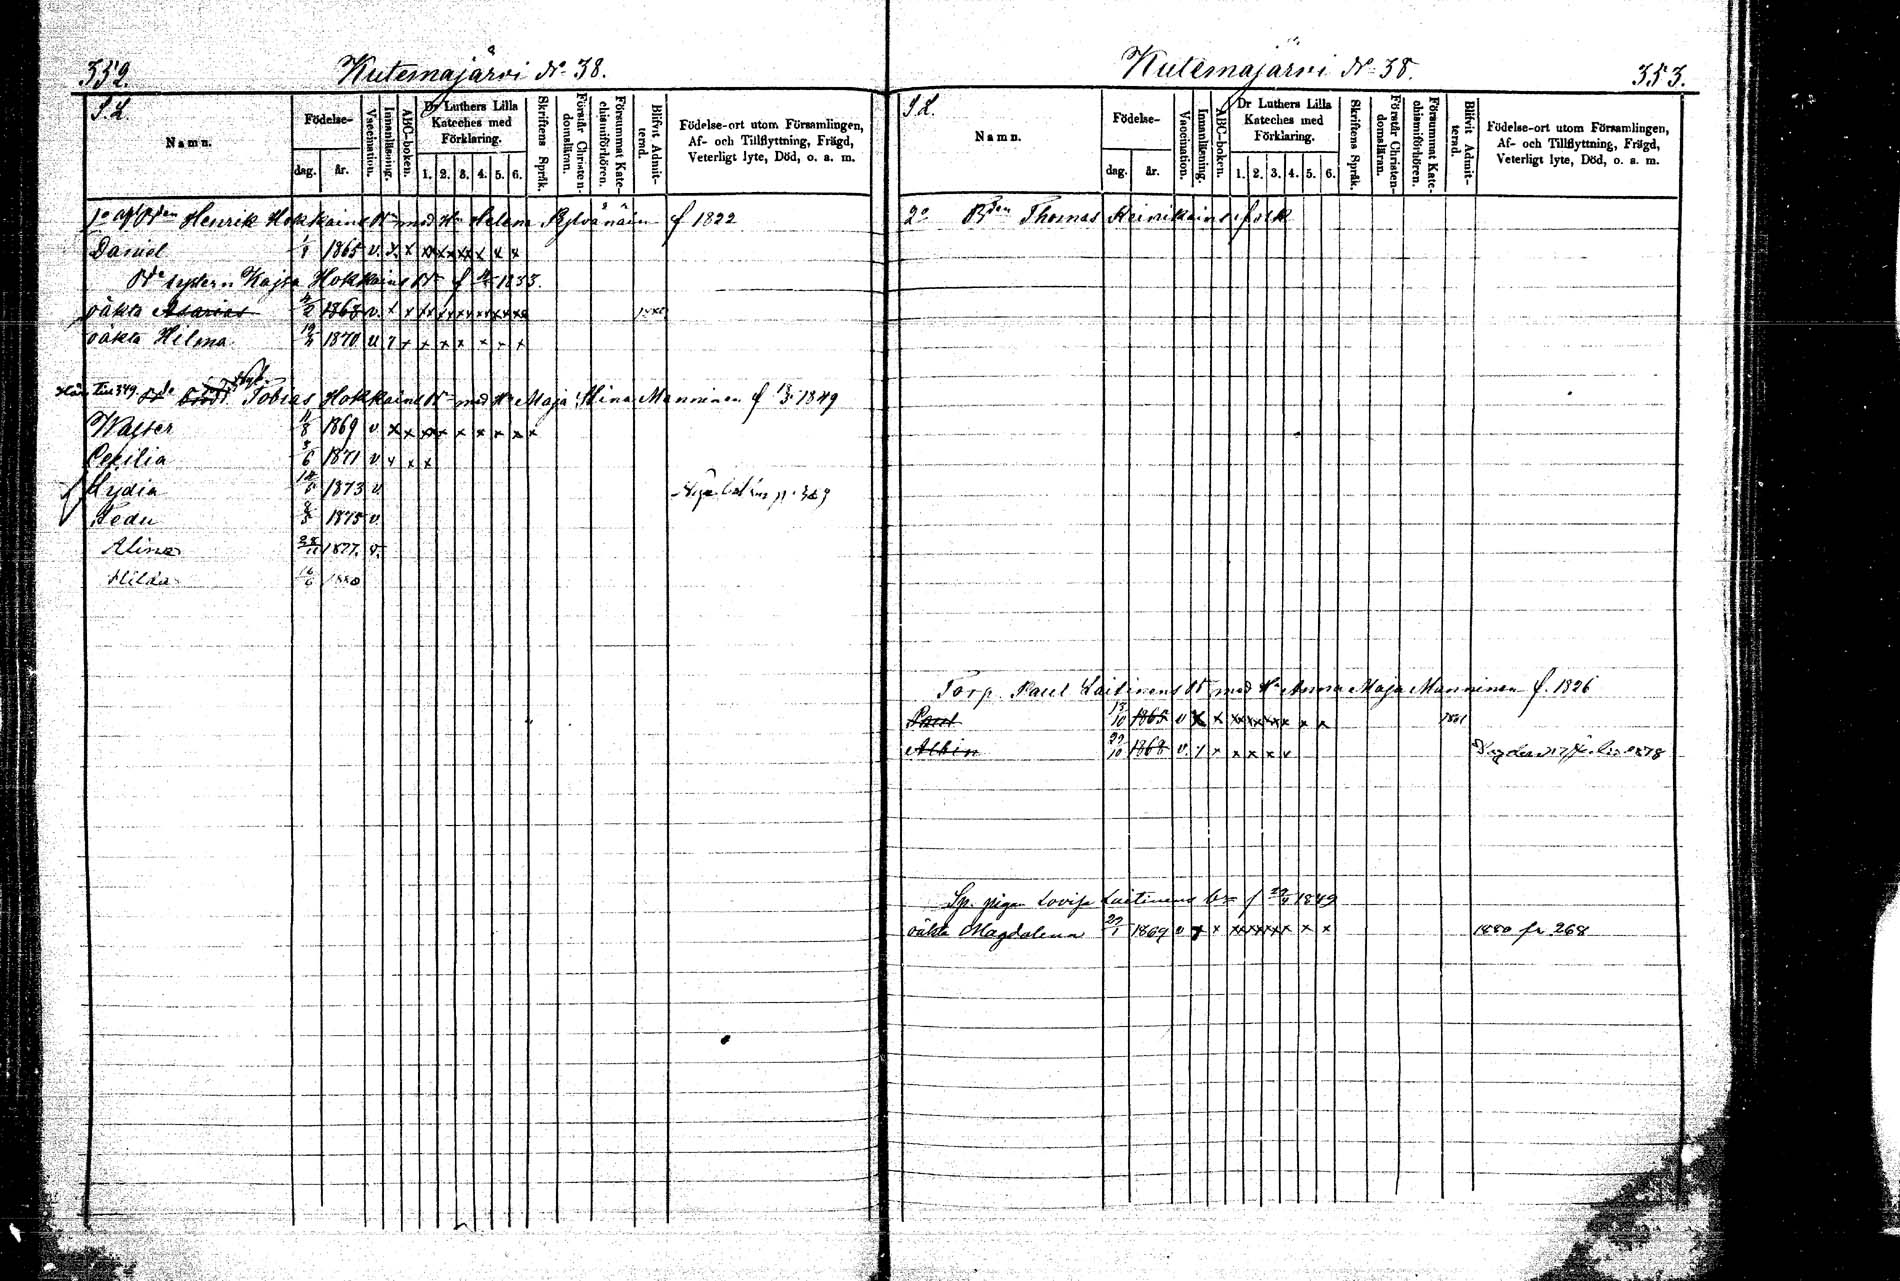 352.
Kutemajärvi No 38.
S. L.
Namn.
Födelse-
dag.
år.
Vaccination.
Innanläsning.
ABC-boken.
Dr Luthers Lilla Kateches med Förklaring.
1. 2. 3. 4. 5. 6.
Skriftens Språk.
Förstår Christen-domsläran.
Försummat Kate-chismiförhören.
Blifvit Admit-terad.
Födelse-ort utom Församlingen, Af- och Tillflyttning, Frägd, Veterligt lyte, Död, o. s. m.
1o Henrik Hokkains med Hu Helena Sylvänäin f 1822
Daniel 1865 v. x x xx xx xx x x x
Kajsa Hokkains f 1833.
oäkta Asarias 2 1868 v. x x
oäkta Hilma 1870 v x x x x x x x
Tobias Hokkains med Hu Maja Stina Manninen f 13/3 1849
Walter 11/8 1869 v x x xx x x x x x x
Cecilia 6 1871 v. x x x
Lydia 1873 v. p. 349
Fedu 1875 v.
Alina 28/11 1877. v.
Hilda 16/6 1880
353.
Kutemajärvi No 38.
S. L.
Namn.
Födelse-
dag.
år.
Vaccination.
Innanläsning.
ABC-boken.
Dr Luthers Lilla Kateches med Förklaring.
1. 2. 3. 4. 5. 6.
Skriftens Språk.
Förstår Christen-domsläran.
Försummat Kate-chismiförhören.
Blifvit Admit-terad.
Födelse-ort utom Församlingen, Af- och Tillflyttning, Frägd, Veterligt lyte, Död, o. s. m.
2o Bden Thomas Heinikains folk
Torp. Paul Laitinens med Hu Anna Maja Manninen f. 1826
Paul 13/10 1865 v x x xx xx xx x x x 1881
Albin 22/10 1868 v. x x x x x 1878
Sp. pigan Lovisa Laitinens f 1849
oäkta Magdalena 1869 v x x xx xx xx x x x 1880 fr 268